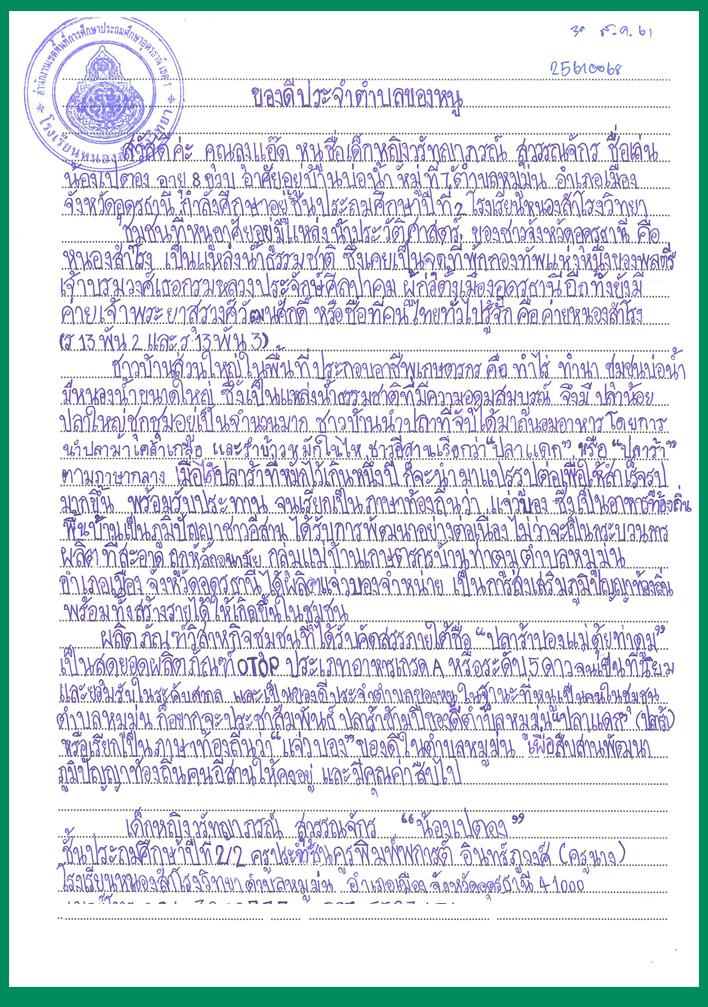 สำนักงานเขตพื้นที่การศึกษาประถมศึกษาอุดรธานี เขต 1
โรงเรียนหนองสำโรงวิทยา
25610068
ของดีประจำตำบลของหนู
สวัสดีค่ะ คุณลุงแอ๊ด หนูชื่อเด็กหญิงวรัทญาภรณ์ สุวรรณจักร ชื่อเล่น
น้องเปตอง อายุ 8 ขวบ อาศัยอยู่บ้านบ่อน้ำ หมู่ที่ 7 ตำบลหมูม่น อำเภอเมือง
จังหวัดอุดรธานี กำลังศึกษาอยู่ชั้นประถมศึกษาปีที่ 2 โรงเรียนหนองสำโรงวิทยา
ชุมชนที่หนูอาศัยอยู่มีแหล่งน้ำประวัติศาสตร์ ของชาวจังหวัดอุดรธานี คือ
หนองสำโรง เป็นแหล่งน้ำธรรมชาติ ซึ่งเคยเป็นจุดที่พักกองทัพแห่งหนึ่งของพลตรี
เจ้าบรมวงศ์เธอกรมหลวงประจักษ์ศิลปาคม ผู้ก่อตั้งเมืองอุดรธานี อีกทั้งยังมี
ค่ายเจ้าพระยาสุรวงศ์วัฒนศักดิ์ หรือชื่อที่คนไทยทั่วไปรู้จัก คือ ค่ายหนองสำโรง
(ร 13 พัน 2 และ ร 13 พัน 3)
ชาวบ้านส่วนใหญ่ในพื้นที่ประกอบอาชีพเกษตรกร คือ ทำไร่ ทำนา ชุมชนบ่อน้ำ
มีหนองน้ำขนาดใหญ่ ซึ่งเป็นแหล่งน้ำธรรมชาติที่มีความอุดมสมบูรณ์ จึงมี ปลาน้อย
ปลาใหญ่ชุกชุมอยู่เป็นจำนวนมาก ชาวบ้านนำปลาที่จับได้มาถนอมอาหาร โดยการ
นำปลามาเคล้าเกลือ และรำข้าวหมักในไห ชาวอีสานเรียกว่า "ปลาแดก" หรือ "ปลาร้า"
ตามภาษากลาง เมื่อได้ปลาร้าที่หมักไว้เกินหนึ่งปี ก็จะนำมาแปรรูปต่อเพื่อให้สำเร็จรูป
มากขึ้น พร้อมรับประทาน จนเรียกเป็นภาษาท้องถิ่นว่า แจ่วบอง ซึ่งเป็นอาหารท้องถิ่น
พื้นบ้านเป็นภูมิปัญญาชาวอีสาน ได้รับการพัฒนาอย่างต่อเนื่อง ไม่ว่าจะเป็นกระบวนการ
ผลิต ที่สะอาด ถูกหลักอนามัย กลุ่มแม่บ้านเกษตรกรบ้านท่าตูม ตำบลหมูม่น
อำเภอเมือง จังหวัดอุดรธานี ได้ผลิตแจ่วบองจำหน่าย เป็นการส่งเสริมภูมิปัญญาท้องถิ่น
พร้อมทั้งสร้างรายได้ให้เกิดขึ้นในชุมชน
ผลิตภัณฑ์วิสาหกิจชุมชนที่ได้รับคัดสรรภายใต้ชื่อ "ปลาร้าบองแม่ตุ้ยท่าตูม"
เป็นสุดยอดผลิตภัณฑ์ OTOP ประเภทอาหารเกรด A หรือระดับ 5 ดาว จนเป็นที่นิยม
และยอมรับในระดับสากล และเป็นของดีประจำตำบลของหนู ในฐานะที่หนูเป็นคนในชุมชน
ตำบลหมูม่น ก็อยากจะประชาสัมพันธ์ ปลาร้าข้ามปีของดีตำบลหมูม่น "ปลาแดก" (ปลาร้า)
หรือเรียกเป็นภาษาท้องถิ่นว่า "แจ่วบอง" ของดีในตำบลหมูม่น เพื่อสืบสานพัฒนา
ภูมิปัญญาท้องถิ่นคนอีสานให้คงอยู่ และมีคุณค่าสืบไป
เด็กหญิงวรัทญาภรณ์ สุวรรณจักร "น้องเปตอง"
ชั้นประถมศึกษาปีที่ 2/2 ครูประจำชั้นครูพิมพ์พการต์ อินทร์ภูวงศ์ (ครูนาง)
โรงเรียนหนองสำโรงวิทยา ตำบลหมูม่น อำเภอเมือง จังหวัดอุดรธานี 41000